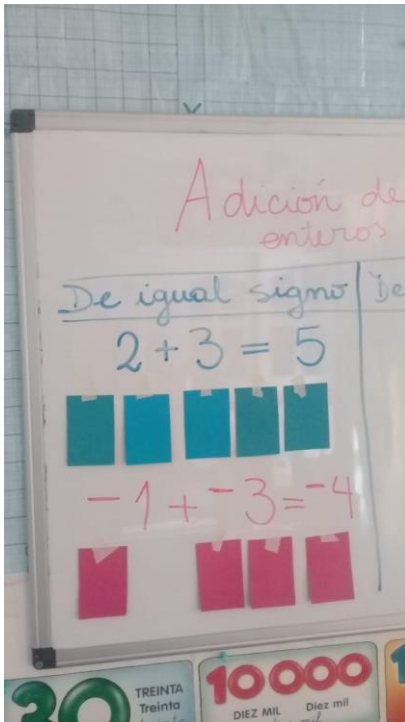 Adición de
enteros
De igual signo
2 + 3 = 5
-1 + -3 = -4
30 TREINTA
Treinta
10 000
DIEZ MIL Diez mil